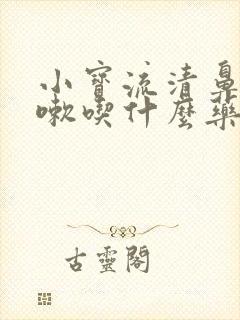 小寶流清鼻
嗽喫什麼藥
古靈閣